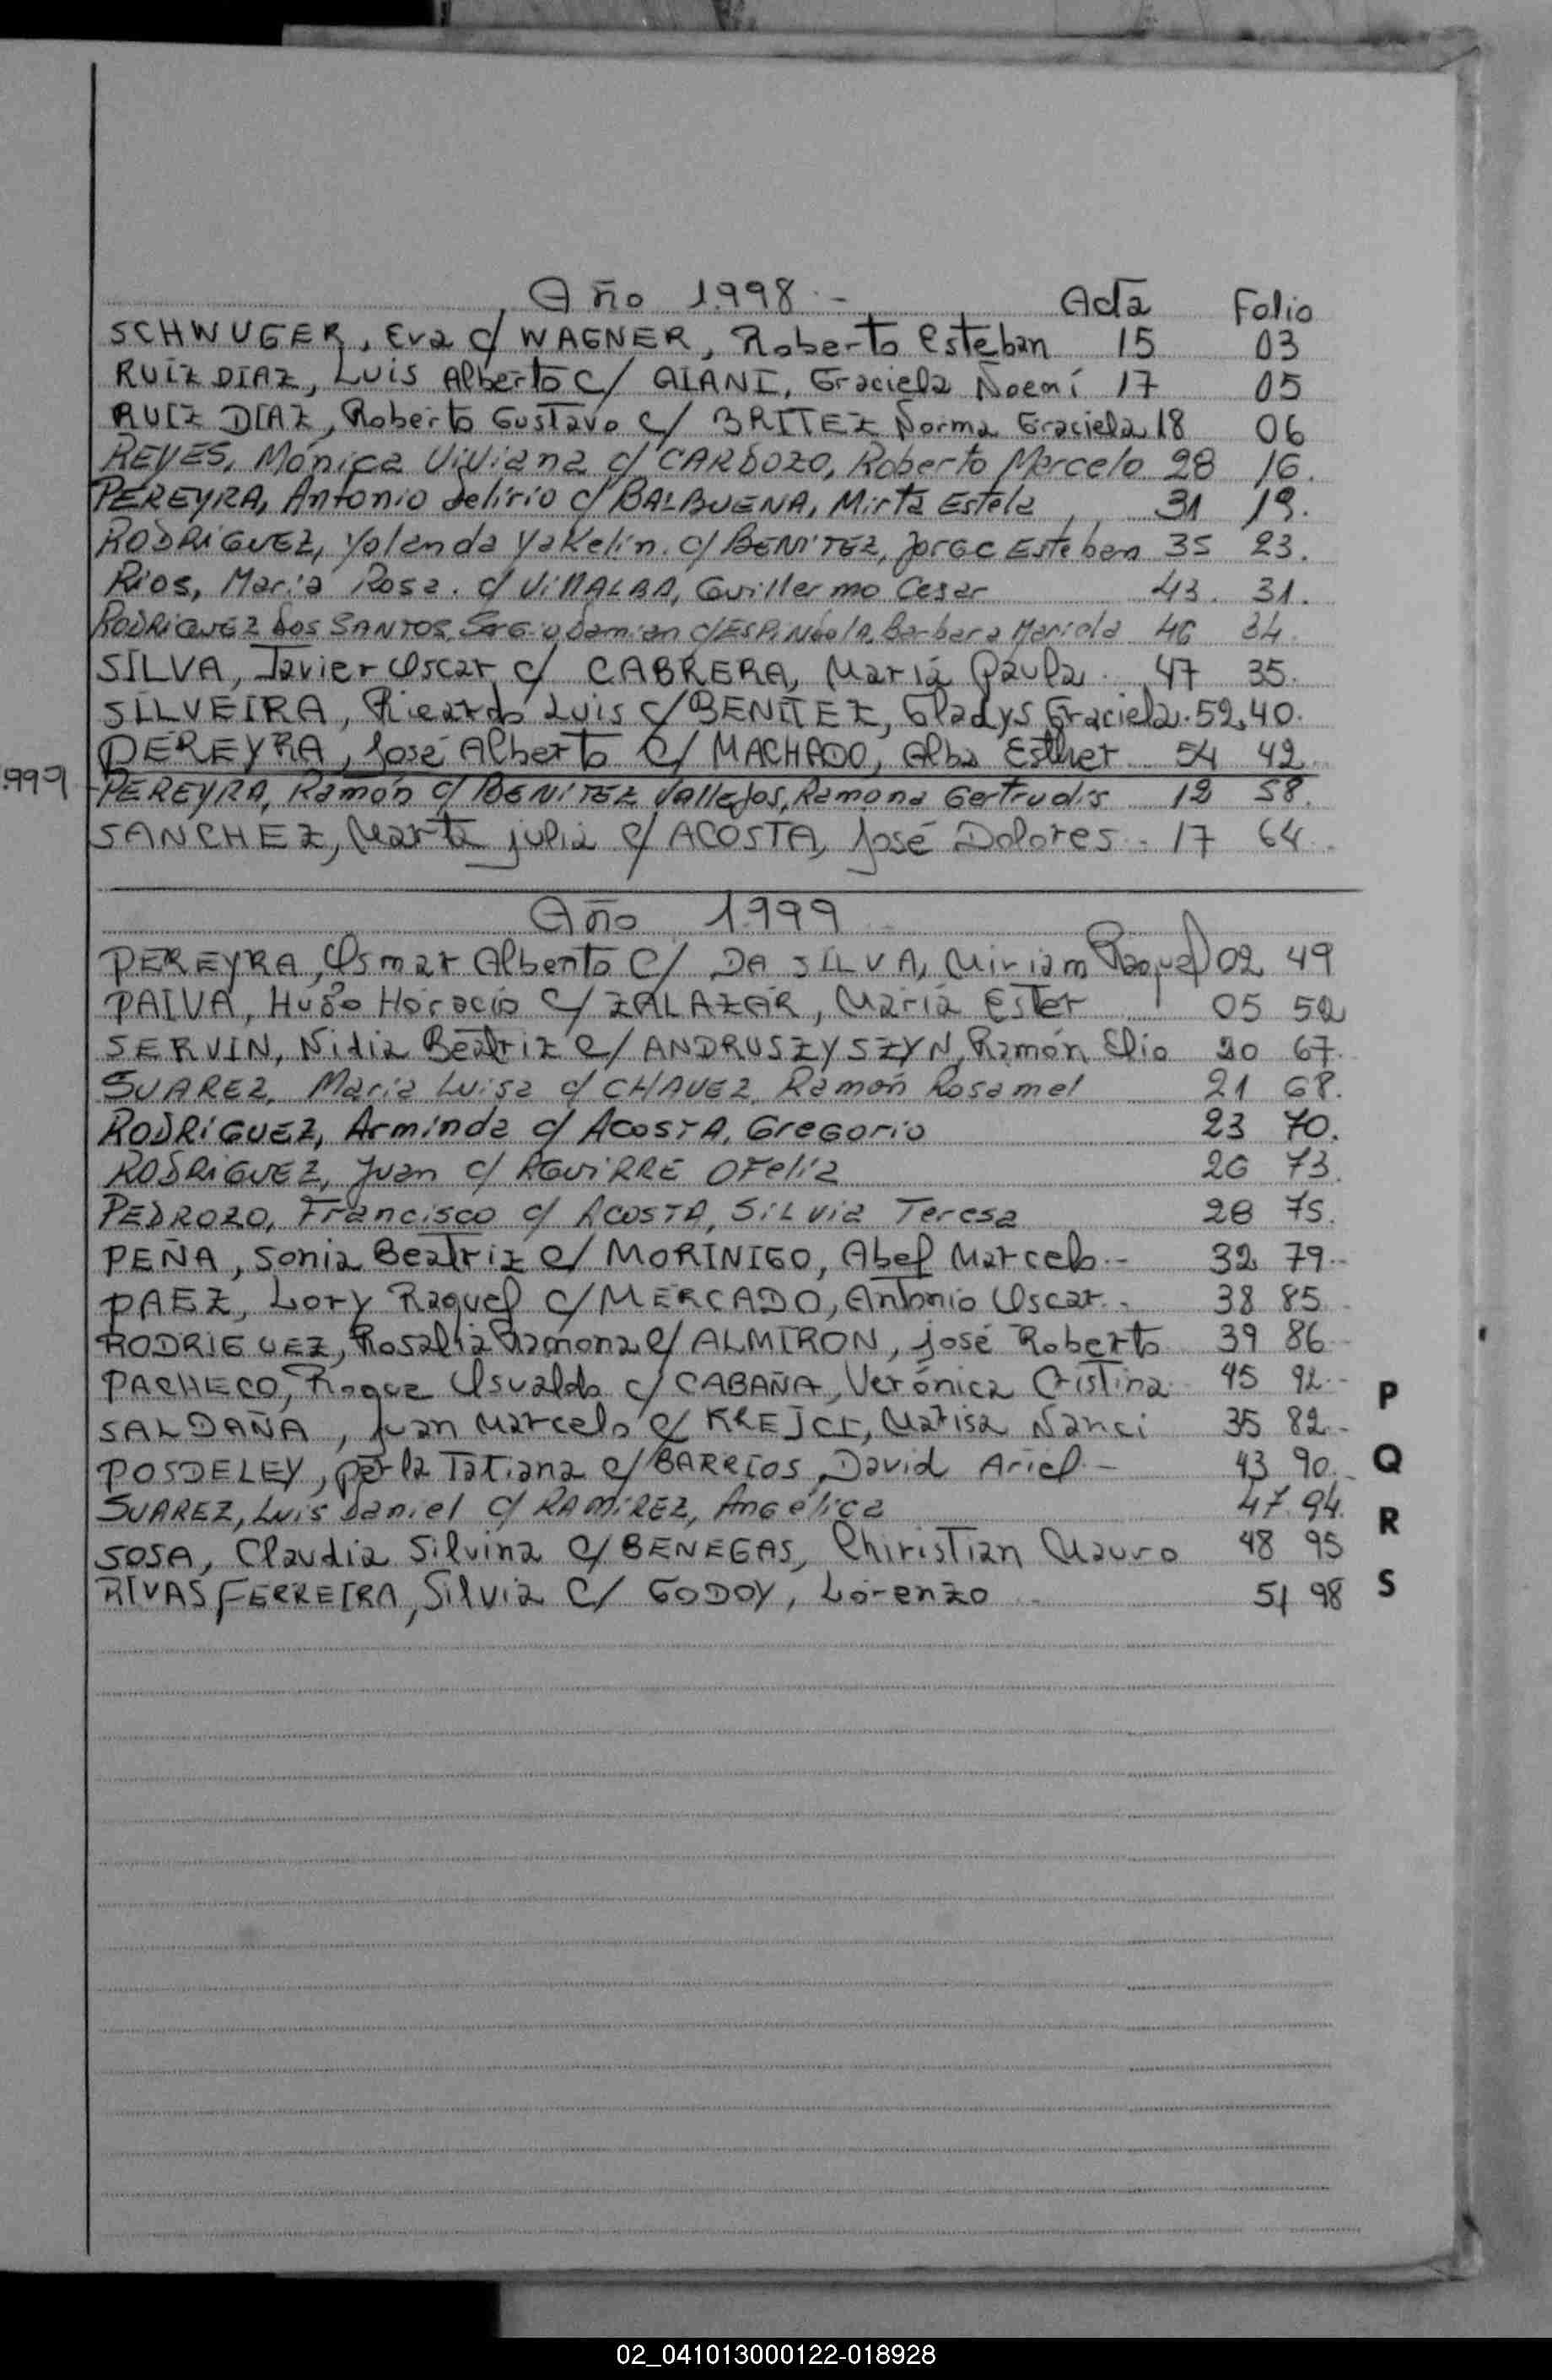 Año 1.998.- Acta Folio
SCHWUGER, Eva c/ WAGNER, Roberto Esteban 15 03
RUIZ DIAZ, Luis Alberto c/ GIANI, Graciela Noemí 17 05
RUIZ DIAZ, Roberto Gustavo c/ BRITEZ Norma Graciela 18 06
REYES, Mónica Viviana c/ CARDOZO, Roberto Marcelo 28 16.
PEREYRA, Antonio delirio c/ BALBUENA, Mirta Estela 31 19.
RODRIGUEZ, Yolanda Yakelin. c/ BENITEZ, Jorge Esteban 35 23.
Rios, Maria Rosa. c/ VILLALBA, Guillermo Cesar 43. 31.
RODRIGUEZ DOS SANTOS, Sergio Damian c/ ESPINDOLA, Barbara Mariela 46 34.
SILVA, Javier Oscar c/ CABRERA, María Paula. 47 35.
SILVEIRA, Ricardo Luis c/ BENITEZ, Gladys Graciela. 52, 40.
PEREYRA, José Alberto c/ MACHADO, Alba Esther 54 42
1999 PEREYRA, Ramón c/ BENITEZ Vallejos, Ramona Gertrudis 12 58.
SANCHEZ, Marta julia c/ ACOSTA, José Dolores. 17 64.
Año 1.999
PEREYRA, Osmar Alberto c/ DA SILVA, Miriam Raquel 02 49
PAIVA, Hugo Horacio c/ ZALAZAR, María Ester 05 52
SERVIN, Nidia Beatriz c/ ANDRUSZYSZYN, Ramón Elio 20 67.
SUAREZ, Maria Luisa c/ CHAVEZ, Ramón Rosamel 21 68.
RODRIGUEZ, Arminda c/ ACOSTA, Gregorio 23 70.
RODRIGUEZ, Juan c/ AGUIRRE OFelia 26 73.
PEDROZO, Francisco c/ ACOSTA, SiLvia Teresa 28 75.
PEÑA, Sonia Beatriz c/ MORINIGO, Abel Marcelo.- 32 79.-
PAEZ, Lory Raquel c/ MERCADO, Antonio Oscar.- 38 85
RODRIGUEZ, Rosalia Ramona c/ ALMIRON, José Roberto 39 86
PACHECO, Roque Osvaldo c/ CABAÑA, Verónica Cristina 45 92.-
P
SALDAÑA, Juan Marcelo c/ KREJCI, Marisa Nanci 35 82.-
POSDELEY, perla Tatiana c/ BARRIOS, David Ariel.- 43 90.-
Q
SUAREZ, Luis Daniel c/ RAMIREZ, Angélica 47. 94.
R
SOSA, Claudia Silvina c/ BENEGAS, Chiristian Mauro 48 95
RIVAS FERREIRA, Silvia c/ GODOY, Lorenzo 51 98
S
02_041013000122-018928